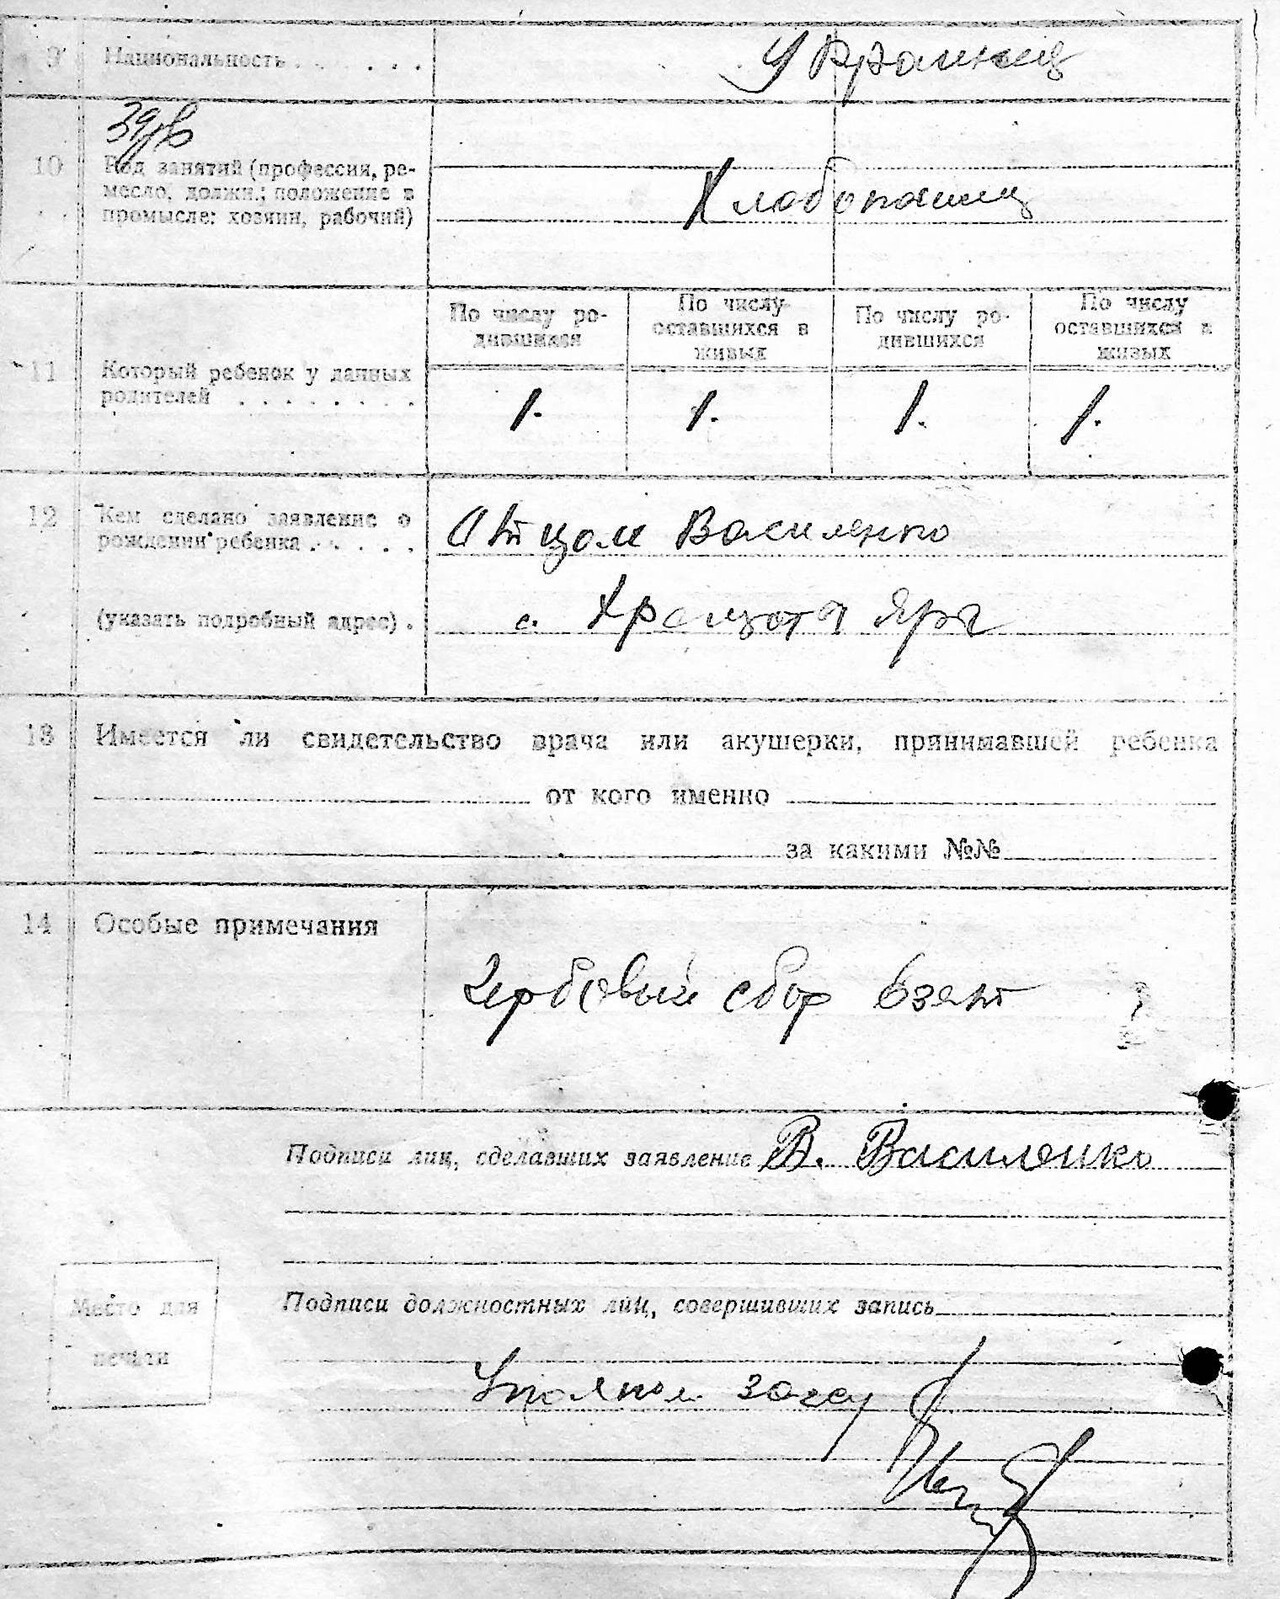 9 Национальность . . . . . Украинец
10 Род занятий (профессия, ре-
месло, должн.; положение в
промысле: хозяин, рабочий)
Хлебопашец
По числу ро-
дившихся
По числу
оставшихся в
живых
По числу ро-
дившихся
По числу
оставшихся в
живых
11 Который ребенок у данных
родителей . . . . . . . .
1. 1. 1. 1.
12 Кем сделано заявление о
рождении ребенка . . . . .
Отцом Василенко
(указать подробный адрес) .
с. Яры
13 Имеется ли свидетельство врача или акушерки, принимавшей ребенка
от кого именно
за какими №№
14 Особые примечания
Гербовый сбор взят
Подписи лиц, сделавших заявление В. Василенко
Место для
печати
Подписи должностных лиц, совершивших запись
загсу